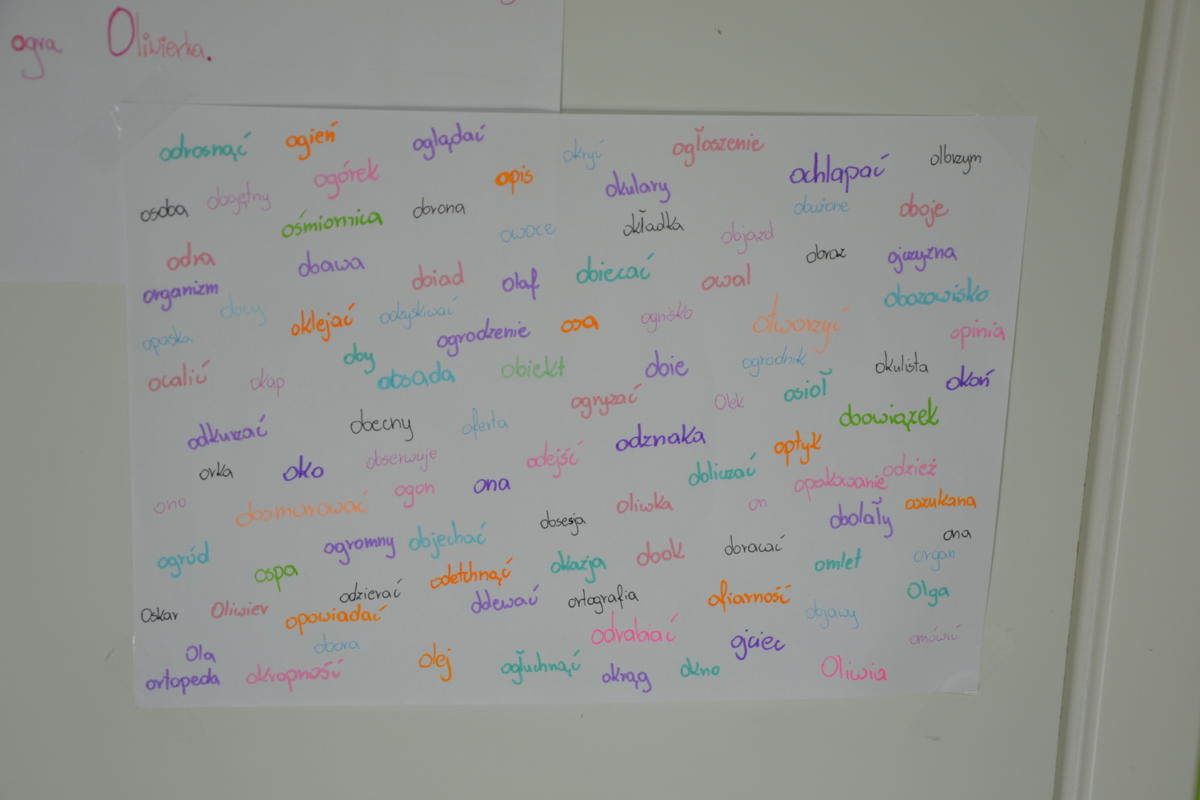 ogra Oliwierka.
odrosnąć ogień oglądać okryć ogłoszenie ochłapać olbrzym
osoba obojętny ogórek opis okulary
ośmiornica obrona owoce okładka objazd oburzone oboje
odra obawa obiad Olaf obiecać owal obraz ojczyzna
organizm obcy oklejać odzyskiwać ogrodzenie osa ognisko otworzyć obozowisko
opaska oby opinia
ocalić okap obsada obiekt obie ogrodnik okulista okoń
odkurzać obecny oferta ogryzać Olek osioł obowiązek
orka oko obserwuje odejść odznaka optyk
ono obsmarować ogon ona oliwka obliczać on opakowanie odzież
ogród ogromny objechać obsesja obolały oszukana
ospa odzierać odetchnąć okazja obok obracać omlet ona organ
Oskar Oliwier opowiadać ortografia ofiarność objawy Olga
Ola obora olej ogłuchnąć odrabiać ojciec omówić
ortopeda okropność okrąg okno Oliwia